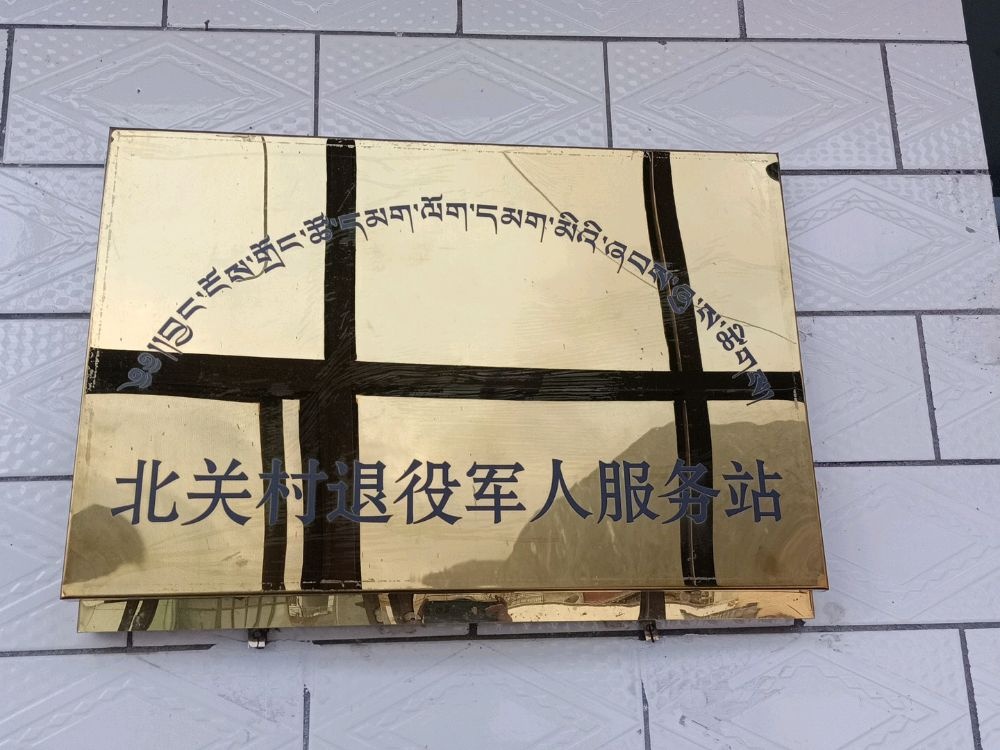 ༄༅།།བྱང་ངོས་གྲོང་ཚོ་དམག་ལོག་དམག་མིའི་ཞབས་ཞུ་ས་ཚིགས།
北关村退役军人服务站